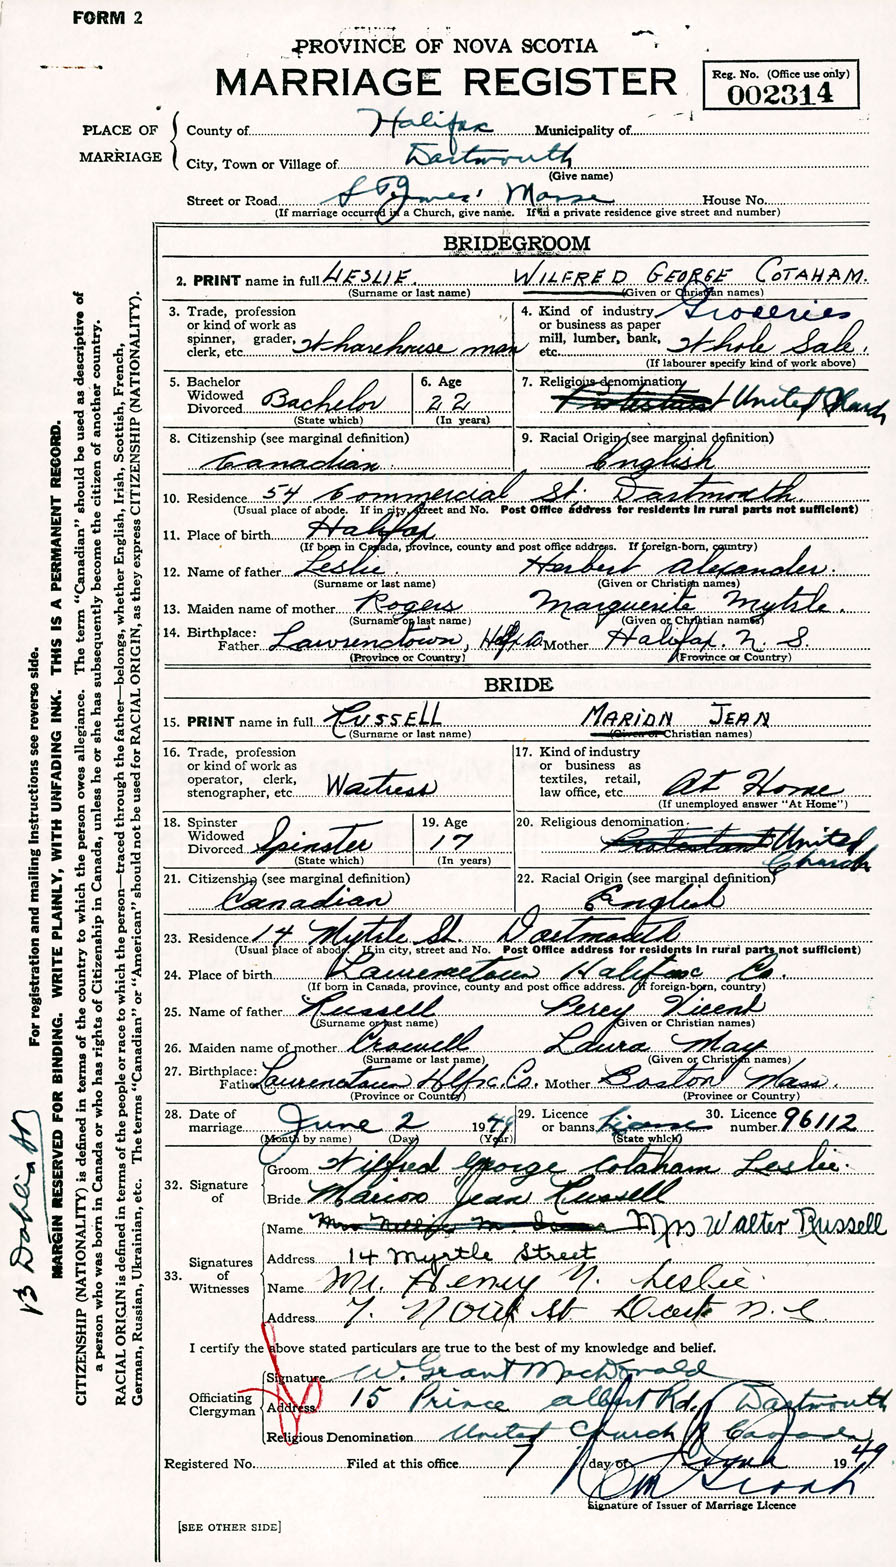 FORM 2
PROVINCE OF NOVA SCOTIA
MARRIAGE REGISTER
Reg. No. (Office use only)
002314
PLACE OF MARRIAGE
County of Halifax Municipality of
City, Town or Village of Dartmouth
(Give name)
Street or Road St James' Manse House No.
(If marriage occurred in a Church, give name. If in a private residence give street and number)
BRIDEGROOM
2. PRINT name in full LESLIE. WILFRED GEORGE COTAHAM.
(Surname or last name) (Given or Christian names)
3. Trade, profession or kind of work as spinner, grader, clerk, etc. Wharehouse man
4. Kind of industry or business as paper mill, lumber, bank, etc. Groceries Whole Sale.
(If labourer specify kind of work above)
5. Bachelor Widowed Divorced Bachelor
(State which)
6. Age 22
(In years)
7. Religious denomination Protestant United Church
8. Citizenship (see marginal definition) Canadian
9. Racial Origin (see marginal definition) English
10. Residence 54 Commercial St. Dartmouth.
(Usual place of abode. If in city, street and No. Post Office address for residents in rural parts not sufficient)
11. Place of birth Halifax
(If born in Canada, province, county and post office address. If foreign-born, country)
12. Name of father Leslie. Herbert Alexander.
(Surname or last name) (Given or Christian names)
13. Maiden name of mother Rogers Marguerite Myrtle.
(Surname or last name) (Given or Christian names)
14. Birthplace: Father Lawrencetown, Mother Halifax. N. S.
(Province or Country) (Province or Country)
BRIDE
15. PRINT name in full RUSSELL MARION JEAN
(Surname or last name) (Given or Christian names)
16. Trade, profession or kind of work as operator, clerk, stenographer, etc. Waitress
17. Kind of industry or business as textiles, retail, law office, etc. At Home
(If unemployed answer "At Home")
18. Spinster Widowed Divorced Spinster
(State which)
19. Age 17
(In years)
20. Religious denomination Protestant United Church
21. Citizenship (see marginal definition) Canadian
22. Racial Origin (see marginal definition) English
23. Residence 14 Myrtle St. Dartmouth
(Usual place of abode. If in city, street and No. Post Office address for residents in rural parts not sufficient)
24. Place of birth Lawrencetown Halifax Co.
(If born in Canada, province, county and post office address. If foreign-born, country)
25. Name of father Russell Percy Vicent
(Surname or last name) (Given or Christian names)
26. Maiden name of mother Crowell Laura May
(Surname or last name) (Given or Christian names)
27. Birthplace: Father Lawrencetown Hlfx. Co. Mother Boston Mass.
(Province or Country) (Province or Country)
28. Date of marriage June 2 1949
(Month by name) (Day) (Year)
29. Licence or banns License
(State which)
30. Licence number 96112
32. Signature of
Groom Wilfred George Cotaham Leslie.
Bride Marion Jean Russell
33. Signatures of Witnesses
Name Mrs Walter Russell
Address 14 Myrtle Street
Name Mr. Henry N. Leslie.
Address 7. North St Dart N.S
I certify the above stated particulars are true to the best of my knowledge and belief.
Officiating Clergyman
Signature W. Grant MacDonald
Address 15 Prince Albert Rd. Dartmouth
Religious Denomination United Church of Canada
Registered No. Filed at this office 7 day of June 1949
Signature of Issuer of Marriage Licence
[SEE OTHER SIDE]
For registration and mailing instructions see reverse side.
MARGIN RESERVED FOR BINDING. WRITE PLAINLY, WITH UNFADING INK. THIS IS A PERMANENT RECORD.
CITIZENSHIP (NATIONALITY) is defined in terms of the country to which the person owes allegiance. The term "Canadian" should be used as descriptive of
a person who was born in Canada or who has rights of Citizenship in Canada, unless he or she has subsequently become the citizen of another country.
RACIAL ORIGIN is defined in terms of the people or race to which the person—traced through the father—belongs, whether English, Irish, Scottish, French,
German, Russian, Ukrainian, etc. The terms "Canadian" or "American" should not be used for RACIAL ORIGIN, as they express CITIZENSHIP (NATIONALITY).